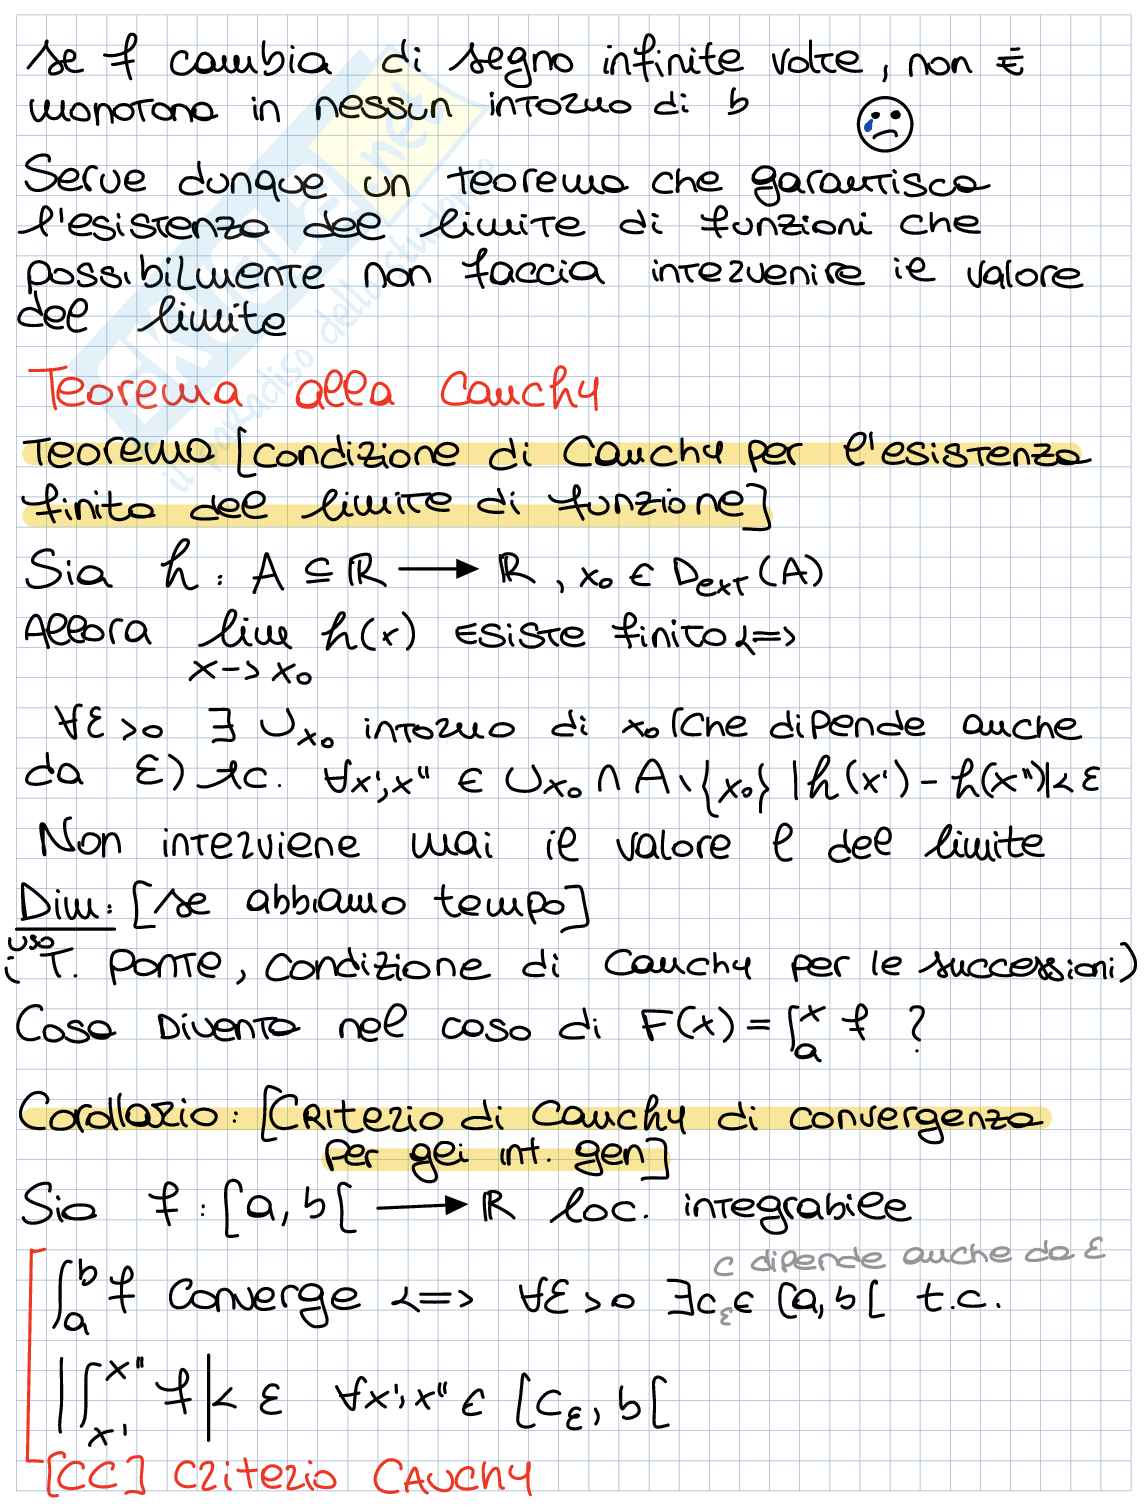 se f cambia di segno infinite volte, non è
monotona in nessun intorno di b
Serve dunque un teorema che garantisca
l'esistenza del limite di funzioni che
possibilmente non faccia intervenire il valore
del limite
Teorema alla Cauchy
Teorema [condizione di Cauchy per l'esistenza
finita del limite di funzione]
Sia h: A ⊆ ℝ ⟶ ℝ, x₀ ∈ D_ext(A)
Allora lim h(x) esiste finito <=>
x->x₀
∀ε>0 ∃ U_x₀ intorno di x₀ (che dipende anche
da ε) t.c. ∀x', x'' ∈ U_x₀ ∩ A \ {x₀} |h(x') - h(x'')| < ε
Non interviene mai il valore l del limite
Dim: [se abbiamo tempo]
uso
(T. Ponte, condizione di Cauchy per le successioni)
Cosa diventa nel caso di F(x) = ∫ₐˣ f ?
Corollario: [Criterio di Cauchy di convergenza
per gli int. gen]
Sia f: [a, b[ ⟶ ℝ loc. integrabile
c dipende anche da ε
∫ₐᵇ f converge <=> ∀ε>0 ∃c_ε ∈ [a, b[ t.c.
|∫_x'^x'' f| < ε ∀x', x'' ∈ [c_ε, b[
[CC] Criterio CAUCHY
skuola.net
il paradiso dello studente